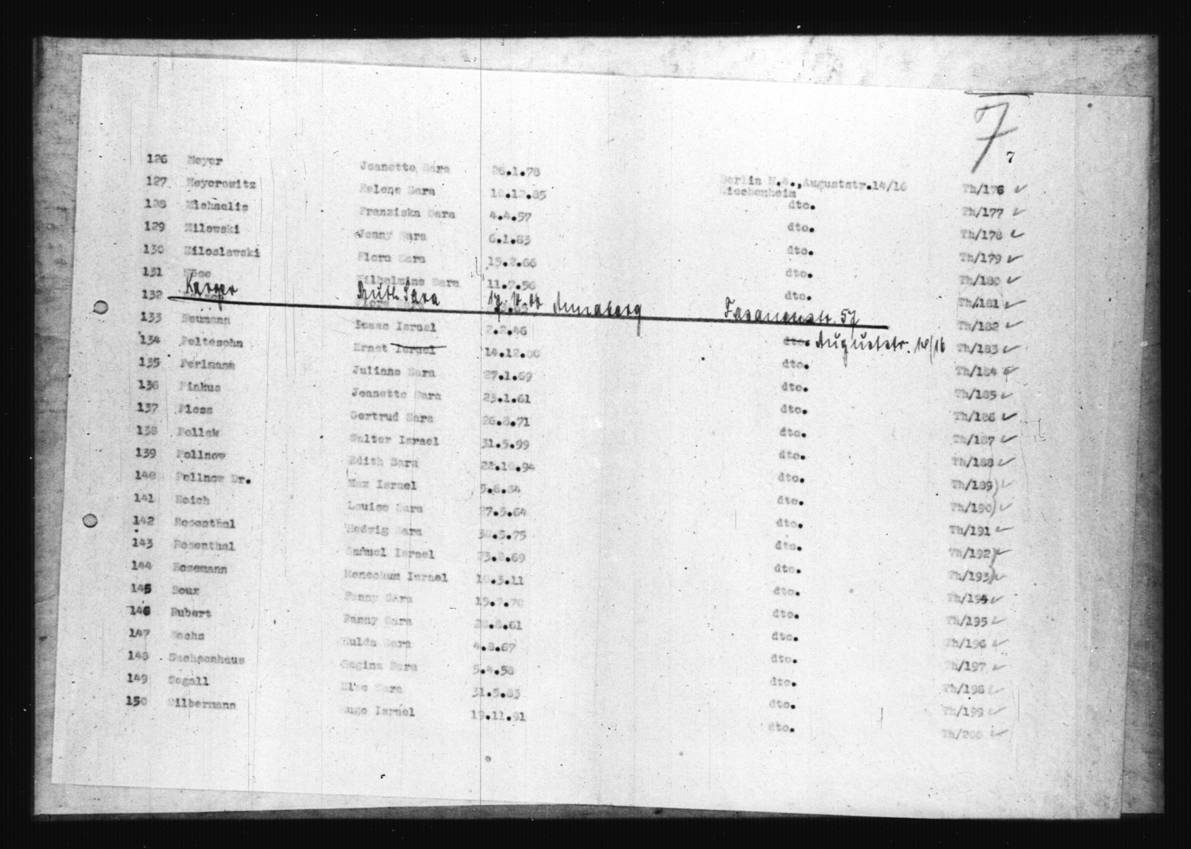 7
7
126 Meyer Jeanette Sara 26.1.78 Berlin N.4., Auguststr.14/16 Th/176
127 Meyerowitz Helene Sara 18.12.85 dto. Th/177
128 Michaelis Franziska Sara 4.4.57 dto. Th/178
129 Milewski Jenny Sara 6.1.83 dto. Th/179
130 Miloslawski Flora Sara 15.2.66 dto. Th/180
131 Wilhelmine Sara 11.7.56 dto. Th/181
132 Karger Ruth Sara Annaberg Fasanenstr. 57 Th/182
133 Neumann Isaac Israel 2.2.46 dto. Auguststr. 14/16 Th/183
134 Peltesohn Ernst Israel 14.12.00 dto. Th/184
135 Perlmann Juliane Sara 27.1.69 dto. Th/185
136 Pinkus Jeanette Sara 23.1.61 dto. Th/186
137 Pless Gertrud Sara 26.8.71 dto. Th/187
138 Pollak Walter Israel 31.5.99 dto. Th/188
139 Pollnow Edith Sara 22.10.94 dto. Th/189
140 Pollnow Dr. Max Israel dto. Th/190
141 Reich Louise Sara 27.5.64 dto. Th/191
142 Rosenthal Hedwig Sara 30.5.75 dto. Th/192
143 Rosenthal Samuel Israel 23.8.69 dto. Th/193
144 Rosemann Menochum Israel 10.3.11 dto. Th/194
145 Fanny Sara 15.7.70 dto. Th/195
146 Rubert Fanny Sara 20.8.61 dto. Th/196
147 Sachs Hulda Sara 4.8.67 dto. Th/197
148 Sachsenhaus Regina Sara 5.4.58 dto. Th/198
149 Segall Else Sara 31.5.83 dto. Th/199
150 Silbermann Hugo Israel 19.11.91 dto. Th/200